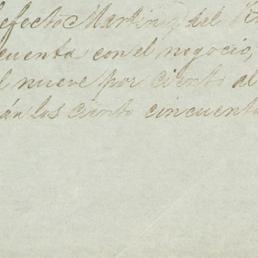 efecto Martinez del
cuenta con el negocio,
l nueve por ciento al
án los ciento cincuent